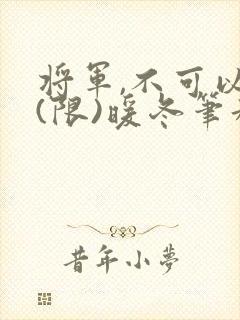 將軍,不可以
(限)暖冬筆
昔年小夢